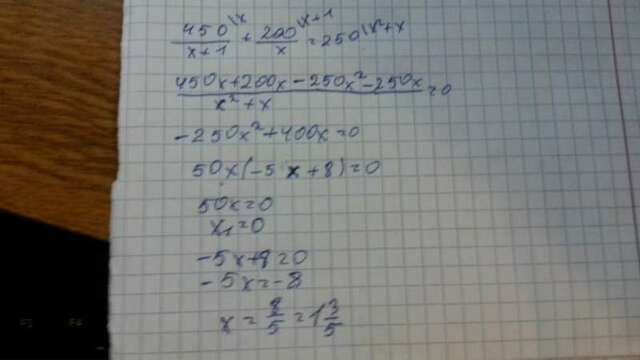 450\x / x+1 + 200\x+1 / x = 250\x²+x
450x+200x-250x²-250x / x²+x = 0
-250x²+400x=0
50x(-5x+8)=0
50x=0
x₁=0
-5x+8=0
-5x=-8
x = 8/5 = 1 3/5